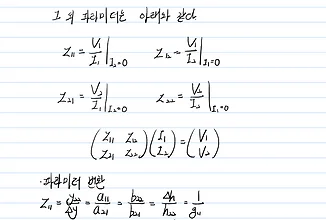 그 외 파라미터는 아래와 같다
Z₁₁ = V₁/I₁ |I₂=0 Z₁₂ = V₁/I₂ |I₁=0
Z₂₁ = V₂/I₁ |I₂=0 Z₂₂ = V₂/I₂ |I₁=0
(Z₁₁ Z₁₂ Z₂₁ Z₂₂)(I₁ I₂) = (V₁ V₂)
·파라미터 변환
Z₁₁ = y₂₂/Δy = a₁₁/a₂₁ = b₂₂/b₂₁ = Δh/h₂₂ = 1/g₁₁